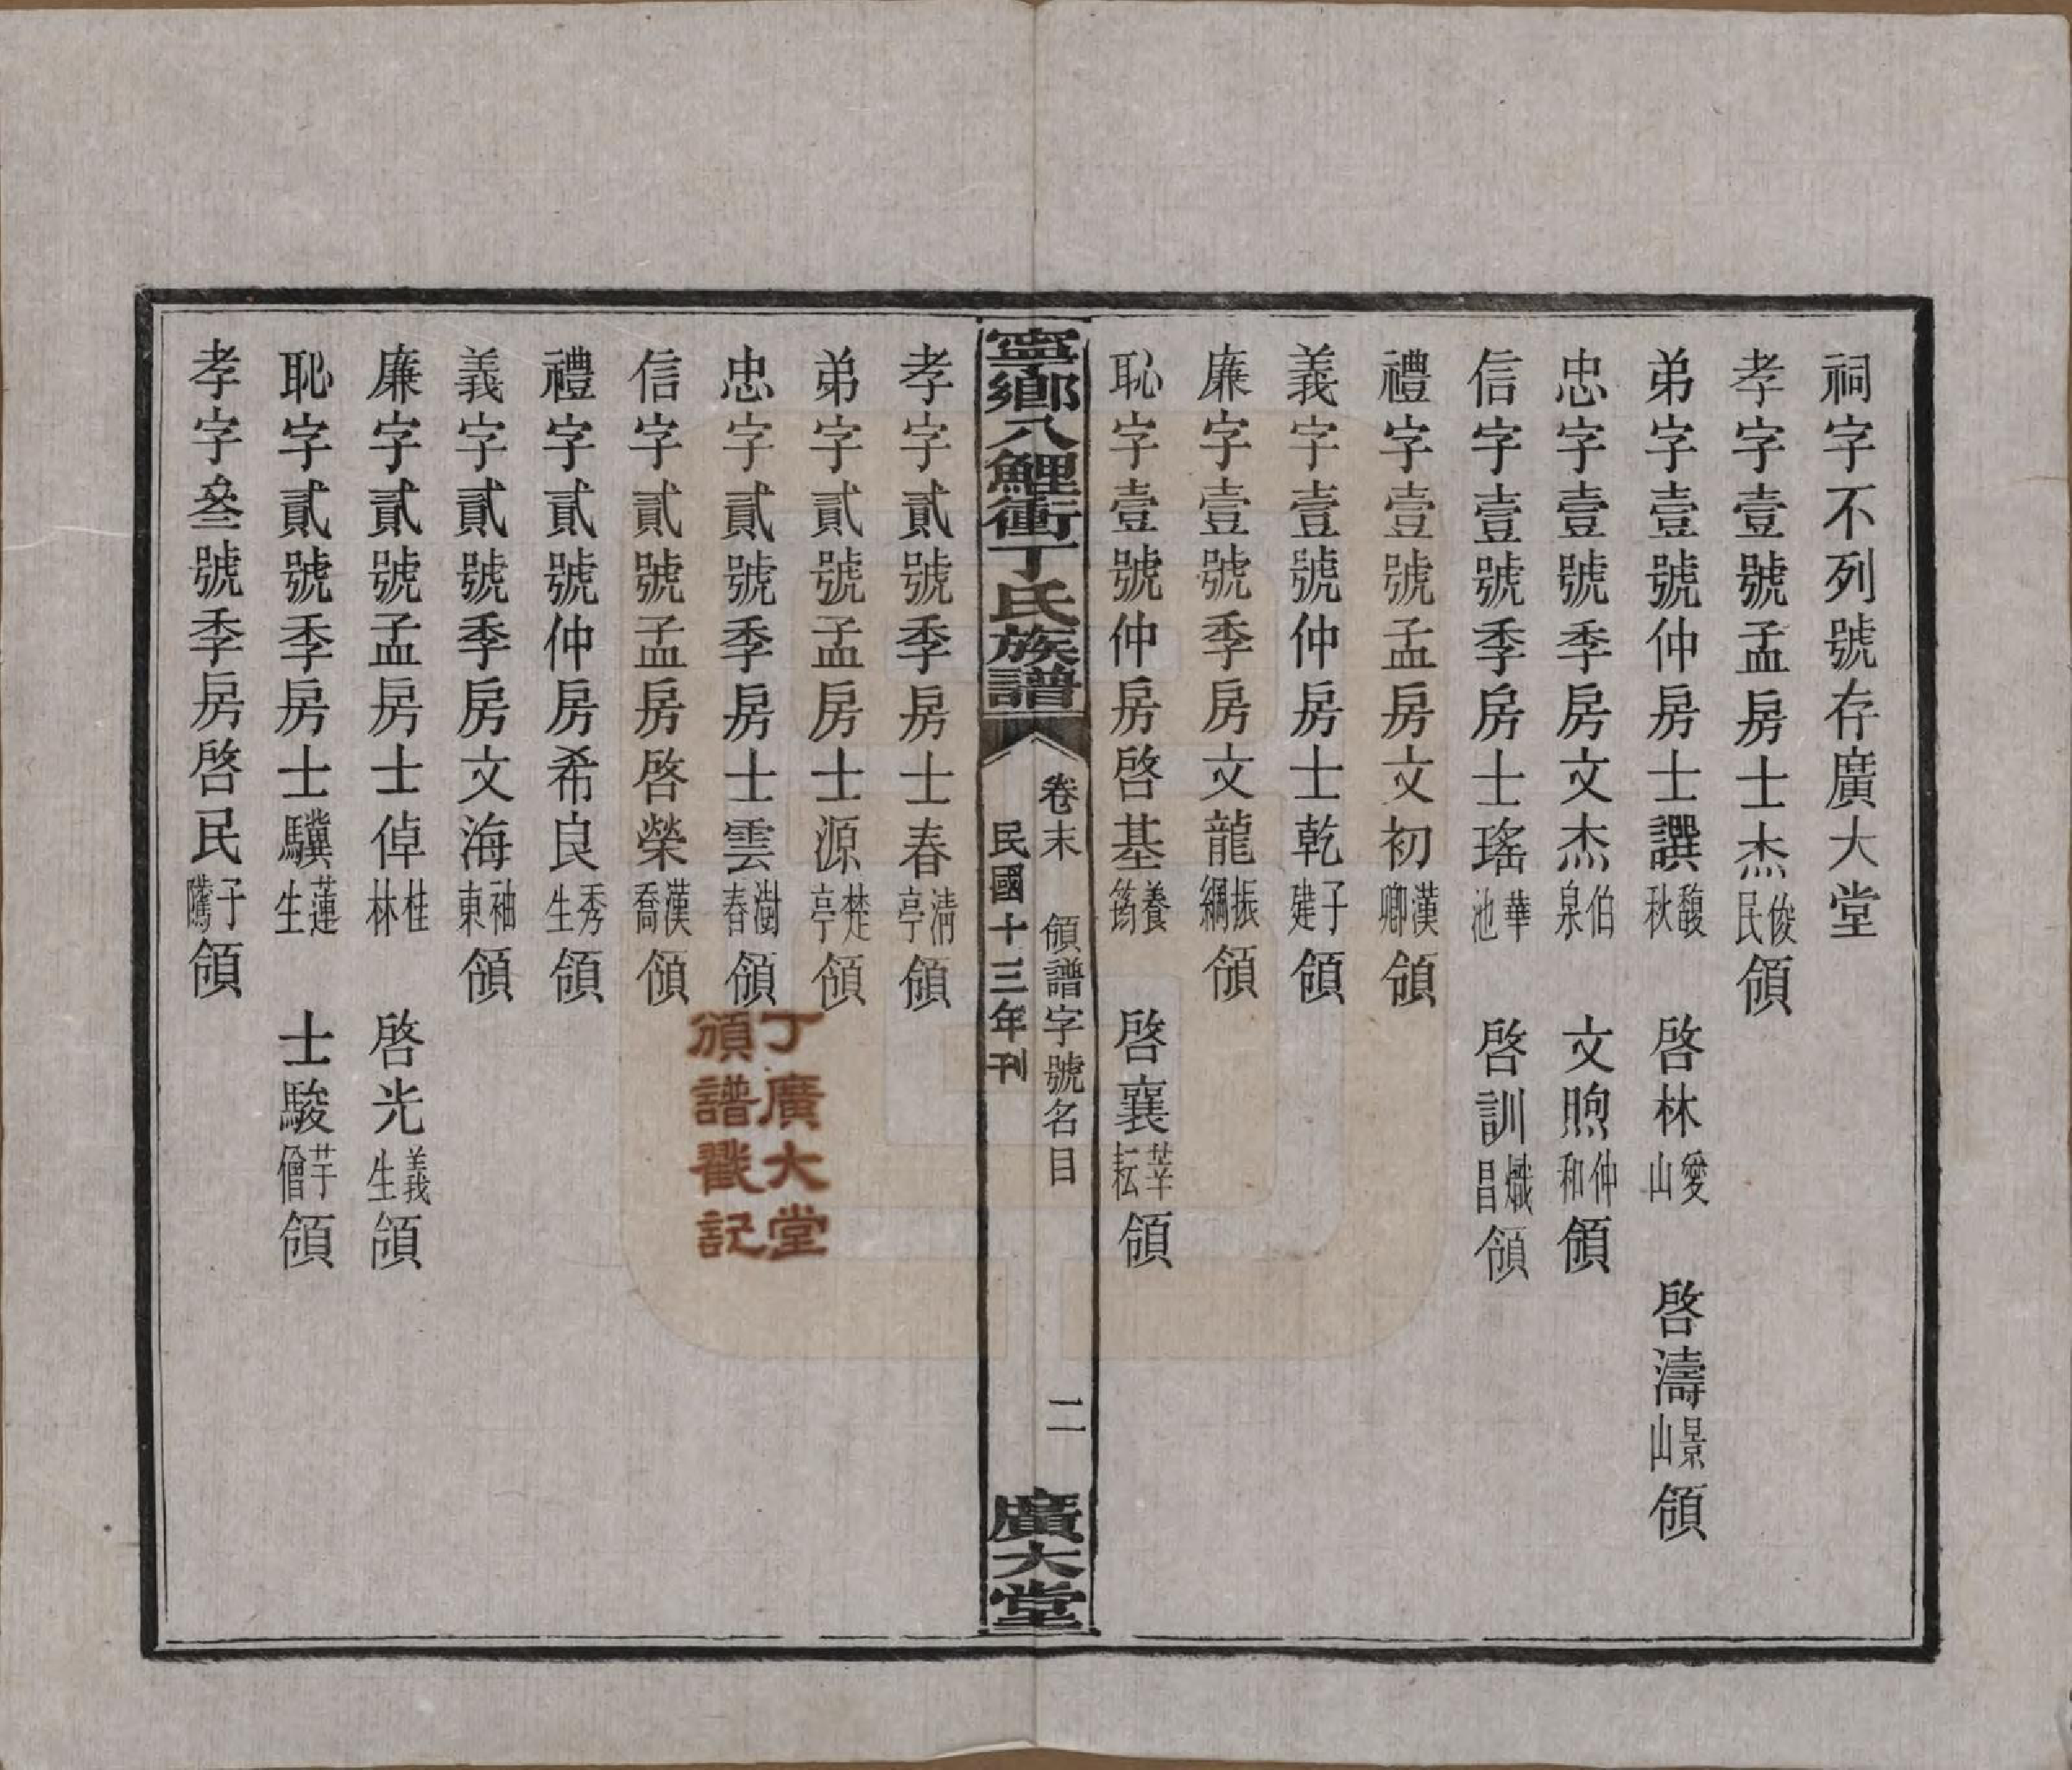 祠字不列號存廣大堂
孝字壹號孟房士杰俊民領
弟字壹號仲房士譔馥秋 啓林愛山 啓濤景山領
忠字壹號季房文杰伯泉 文煦仲和領
信字壹號季房士瑤華池 啓訓熾昌領
禮字壹號孟房文初漢卿領
義字壹號仲房士乾子建領
廉字壹號季房文龍振綱領
恥字壹號仲房啓基養筠 啓襄莘耘領
寧鄉八鯉衝丁氏族譜
卷末 領譜字號名目 二
民國十三年刊
廣大堂
孝字貳號季房士春清亭領
弟字貳號孟房士源楚亭領
忠字貳號季房士雲澍春領
信字貳號孟房啓榮漢喬領
禮字貳號仲房希良秀生領
義字貳號季房文海袖東領
廉字貳號孟房士倬桂林 啓光義生領
恥字貳號季房士驥蓮生 士駿芋僧領
孝字叄號季房啓民子騰領
丁廣大堂
頒譜戳記